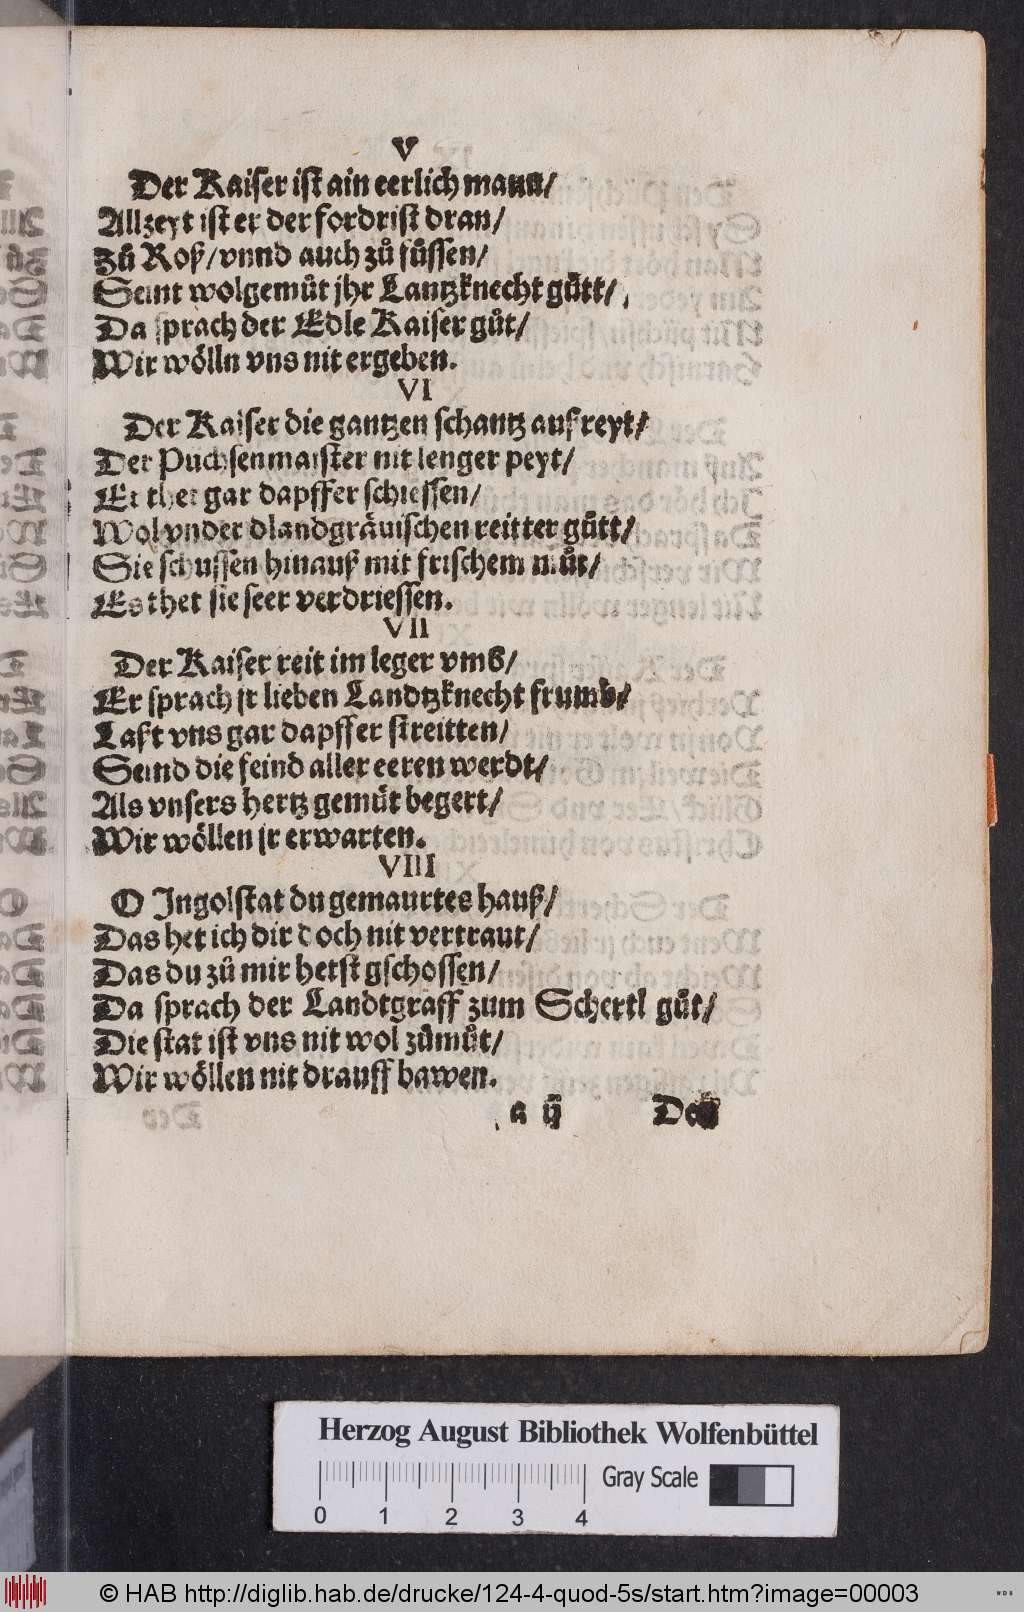 V
Der Kaiser ist ain eerlich mann/
Allzeyt ist er der fordrist dran/
Zů Roß/ vnnd auch zů fůssen/
Seint wolgemůt jhr Lantzknecht gůtt/
Da sprach der Edle Kaiser gůt/
Wir wölln vns nit ergeben.
VI
Der Kaiser die gantzen schantz auf reyt/
Der Puchsenmaister nit lenger peyt/
Er thet gar dapffer schiessen/
Wol vnder dlandgräuischen reitter gůtt/
Sie schussen hinauß mit frischem můt/
Es thet sie seer verdriessen.
VII
Der Kaiser reit im leger vmb/
Er sprach jr lieben Landtzknecht frumb/
Last vns gar dapffer streitten/
Seind die feind aller eeren werdt/
Als vnsers hertz gemůt begert/
Wir wöllen jr erwarten.
VIII
O Ingolstat du gemaurtes hauß/
Das het ich dir doch nit vertraut/
Das du zů mir hetst gschossen/
Da sprach der Landtgraff zum Schertl gůt/
Die stat ist vns nit wol zůmůt/
Wir wöllen nit drauff bawen.
a ij Der
Herzog August Bibliothek Wolfenbüttel
Gray Scale
0 1 2 3 4
© HAB http://diglib.hab.de/drucke/124-4-quod-5s/start.htm?image=00003